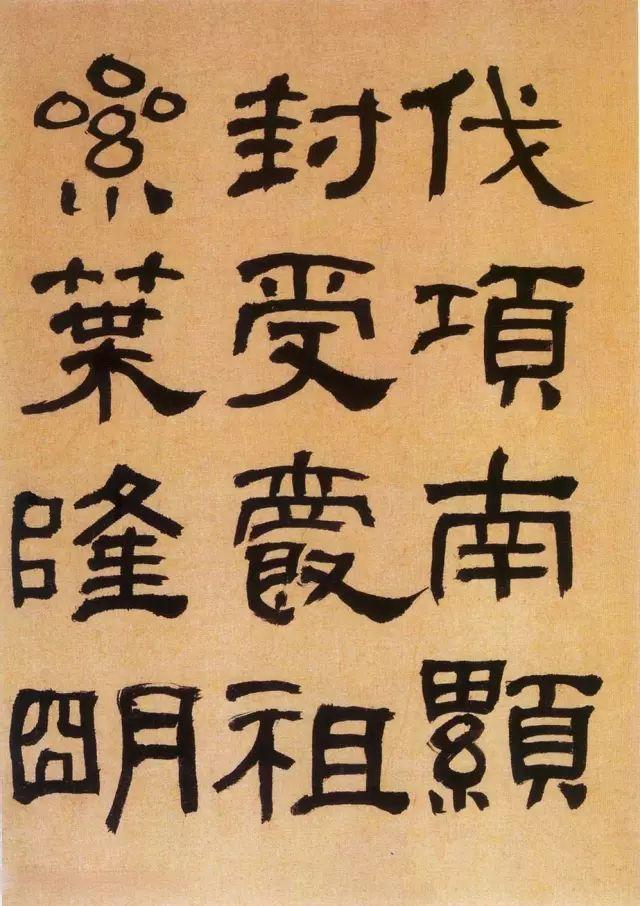 伐項南顯
封受祖
絫葉隆朙